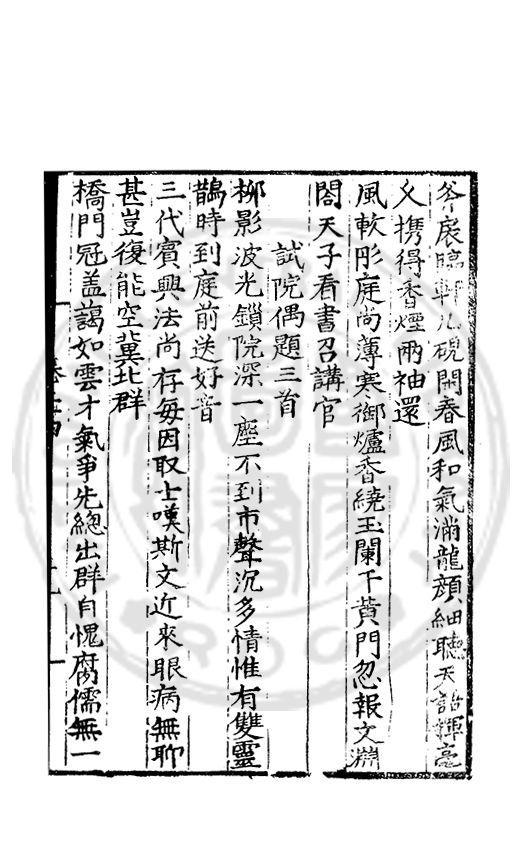 斧扆臨軒几硯開春風和氣滿龍顏細聽天語揮毫
久携得香煙兩袖還
風軟彤庭尚薄寒御爐香繞玉闌干黃門忽報文淵
閣天子看書召講官
試院偶題三首
柳影波光鎖院深一塵不到市聲沉多情惟有雙靈
鵲時到庭前送好音
三代賓興法尚存每因取士嘆斯文近來眼病無聊
甚豈復能空冀北群
橋門冠盖藹如雲才氣爭先總出群自愧腐儒無一
卷